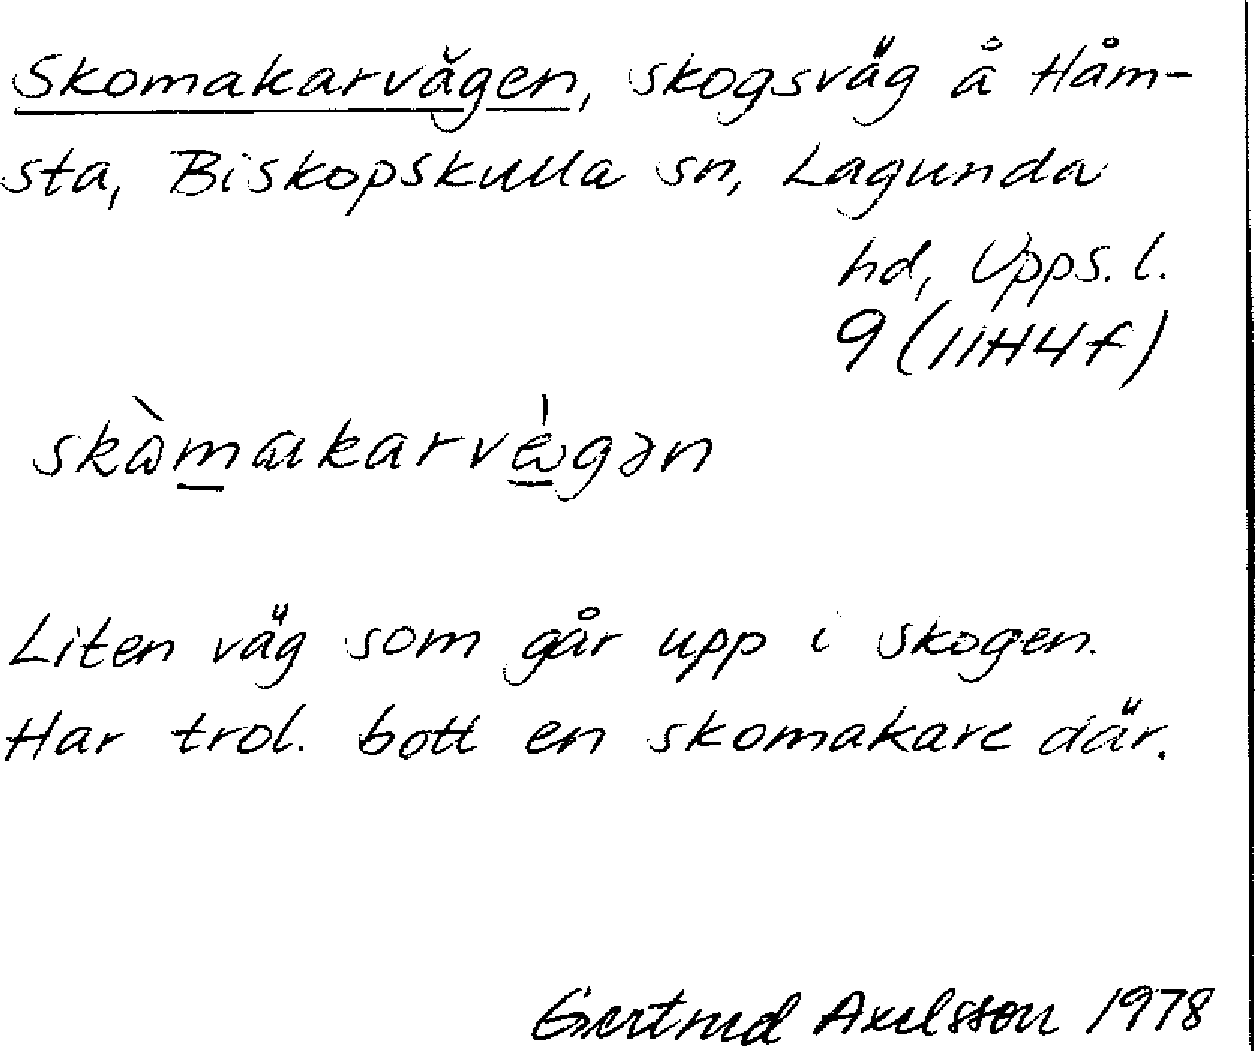 Skomakarvägen, skogsväg å Håm-
sta, Biskopskulla sn, Lagunda
hd, Upps. l.
9 (11H4f)
Liten väg som går upp i skogen.
Har trol. bott en skomakare där.
Gertrud Axelsson 1978